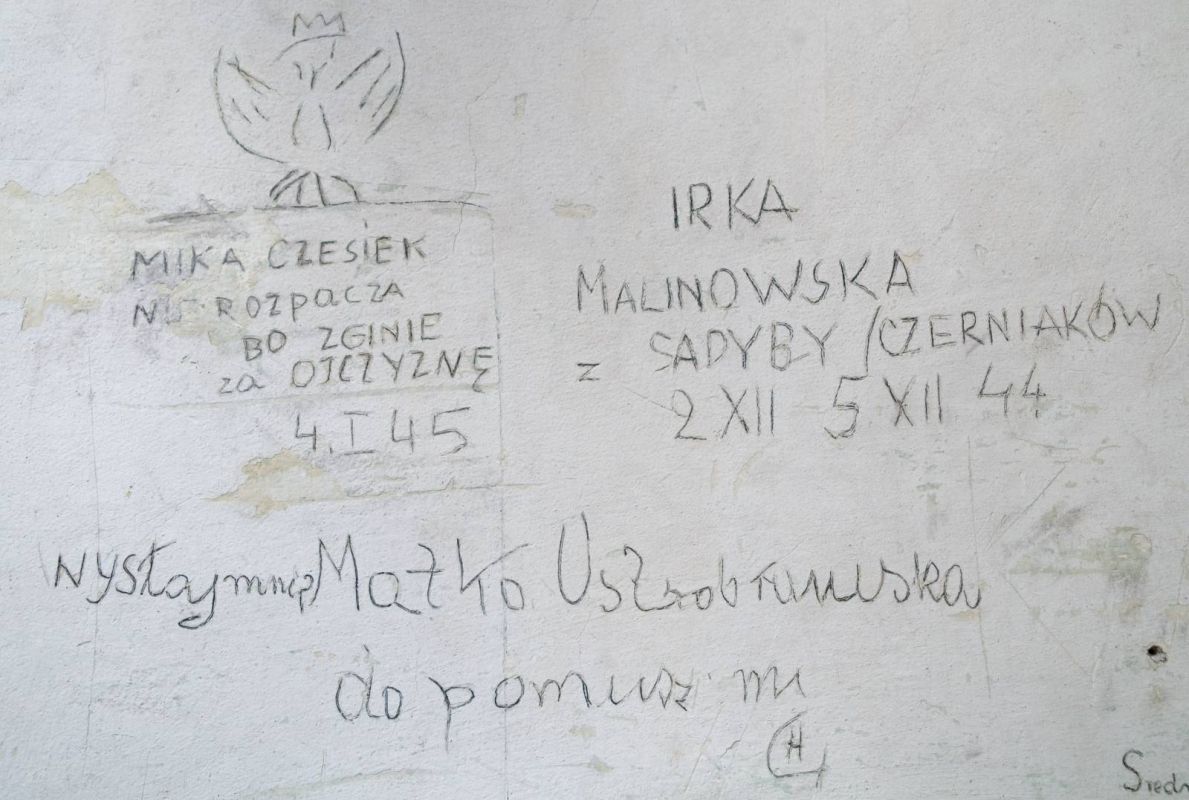 MIKA CZESIEK
ROZPACZA
BO ZGINIE
za OJCZYZNĘ
4.I 45
IRKA
MALINOWSKA
z SADYBY /CZERNIAKÓW
2 XII 5 XII 44
wysłaj mnię Matko
do pomusz mi
H